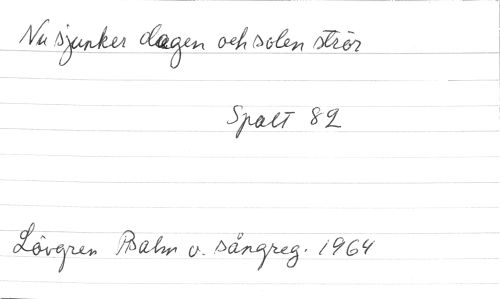 Nu sjunker dagen och solen strör
Spalt 82
Lövgren Psalm o. sångreg. 1964